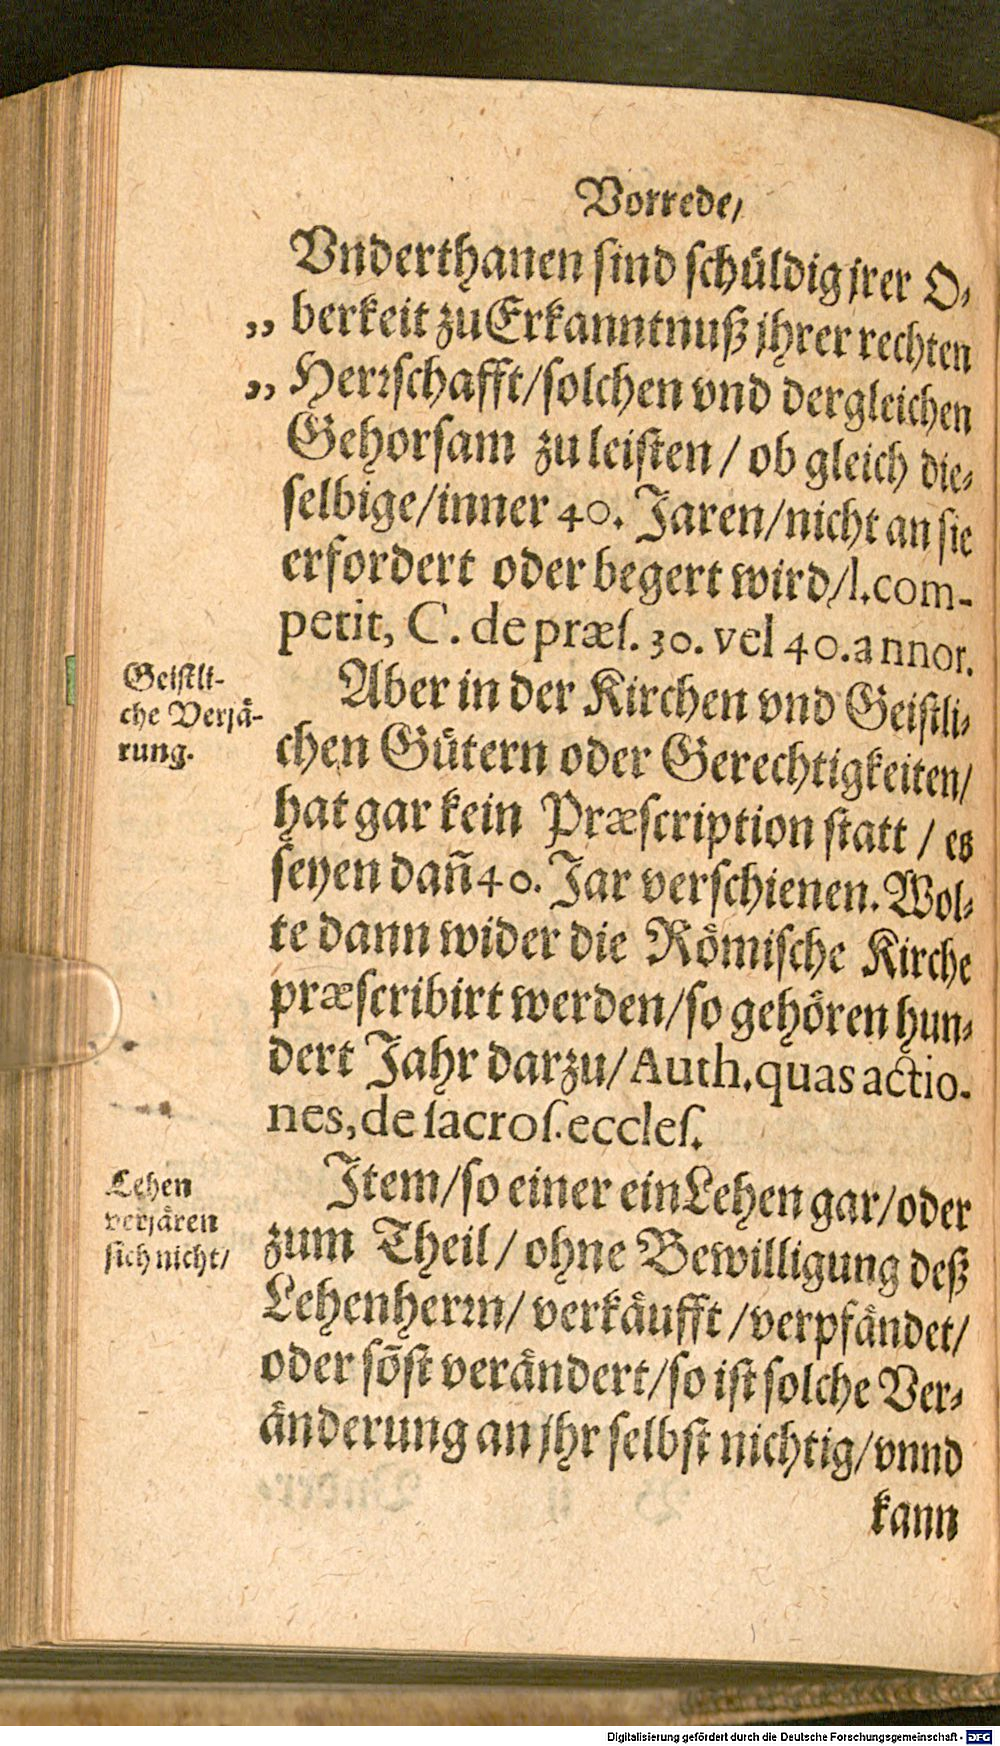 Vorrede/
Vnderthanen sind schüldig jrer O-
„ berkeit zu Erkanntnuß jhrer rechten
„ Herrschafft/ solchen vnd dergleichen
Gehorsam zu leisten / ob gleich die-
selbige/ inner 40. Jaren/ nicht an sie
erfordert oder begert wird/ l. com-
petit, C. de præſ. 30. vel 40. annor.
Geistli-
che Verjä-
rung.
Aber in der Kirchen vnd Geistli-
chen Gütern oder Gerechtigkeiten/
hat gar kein Præscription statt / es
seyen dañ 40. Jar verschienen. Wol-
te dann wider die Römische Kirche
præscribirt werden/ so gehören hun-
dert Jahr darzu/ Auth. quas actio-
nes, de ſacroſ. eccleſ.
Lehen
verjären
sich nicht/
Item/ so einer ein Lehen gar/ oder
zum Theil / ohne Bewilligung deß
Lehenherrn/ verkäufft / verpfändet/
oder söst verändert/ so ist solche Ver-
änderung an jhr selbst nichtig/ vnnd
kann
Digitalisierung gefördert durch die Deutsche Forschungsgemeinschaft - DFG